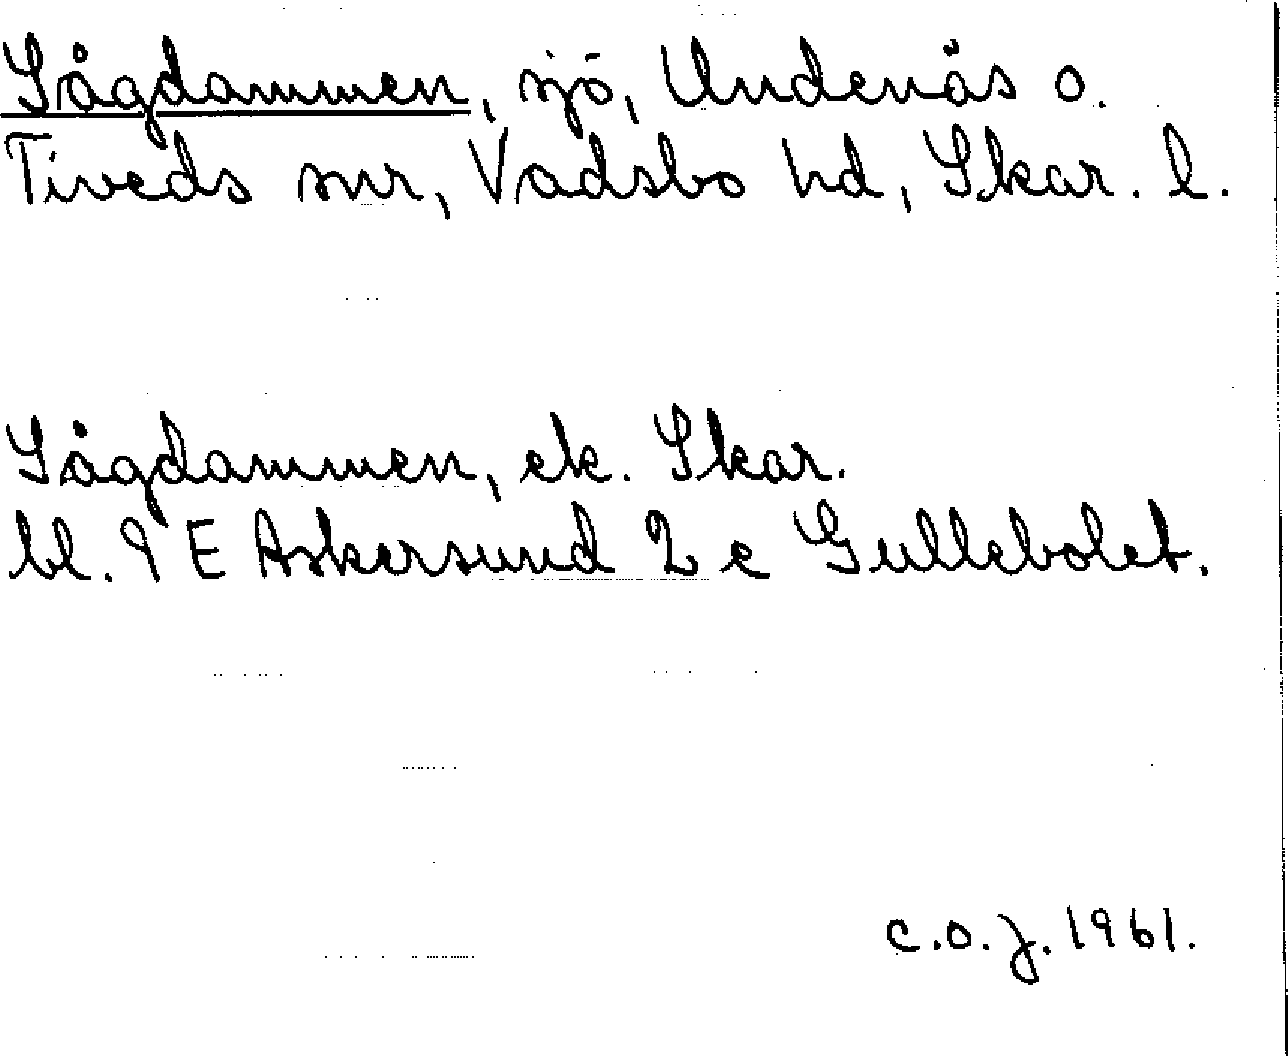 Sågdammen, sjö, Undenäs o.
Tiveds snr, Vadsbo hd, Skar. l.
Sågdammen, ek. Skar.
bl. 9 E Askersund 2 c Gullebolet.
C.O.J. 1961.